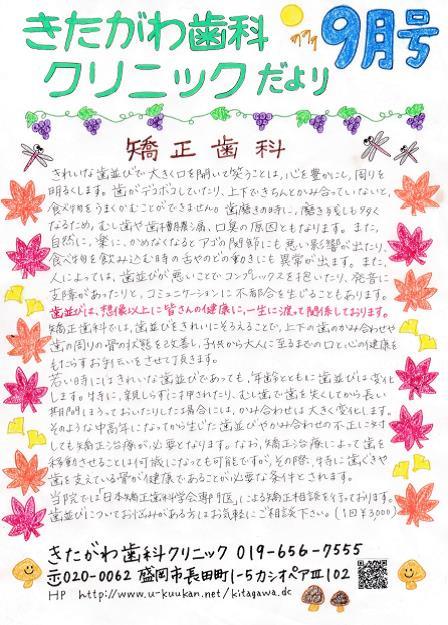 きたがわ歯科
クリニックだより
9月号
矯正歯科
きれいな歯並びで大きく口を開いて笑うことは、心を豊かにし、周りを
明るくします。歯がデコボコしていたり、上下できちんとかみ合っていないと、
食べ物をうまくかむことができません。歯磨きの時に、磨き残しも多く
なるため、むし歯や歯槽膿漏、口臭の原因ともなります。また、
自然に、楽に、かめなくなるとアゴの関節にも悪い影響が出たり、
食べ物を飲み込む時の舌やのどの動きにも異常が出ます。また、
人によっては、歯並びが悪いことでコンプレックスを抱いたり、発音に
支障があったりと、コミュニケーションに不都合を生じることもあります。
歯並びは、想像以上に皆さんの健康に、一生に渡って関係しております。
矯正歯科では、歯並びをきれいにそろえることで、上下の歯のかみ合わせや
歯の周りの骨の状態を改善し、子供から大人に至るまでの口と心の健康を
もたらすお手伝いをさせて頂きます。
若い時にはきれいな歯並びであっても、年齢とともに歯並びは変化
します。特に、親しらずに押されたり、むし歯で歯を失くしてから長い
期間ほうっておいたりした場合には、かみ合わせは大きく変化します。
そのような中高年になってから生じた歯並びやかみ合わせの不正に対
しても矯正治療が必要となります。なお、矯正治療によって歯を
移動させることは何歳になっても可能ですが、その際、特に歯ぐきや
歯を支えている骨が健康であることが必要な条件とされます。
当院では「日本矯正歯科学会専門医」による矯正相談を行っております。
歯並びについてお悩みがある方はお気軽にご相談下さい。(1回¥3,000)
きたがわ歯科クリニック 019-656-7555
〒020-0062 盛岡市長田町1-5カシオペアⅢ102
HP http://www.u-kuukan.net/kitagawa.dc